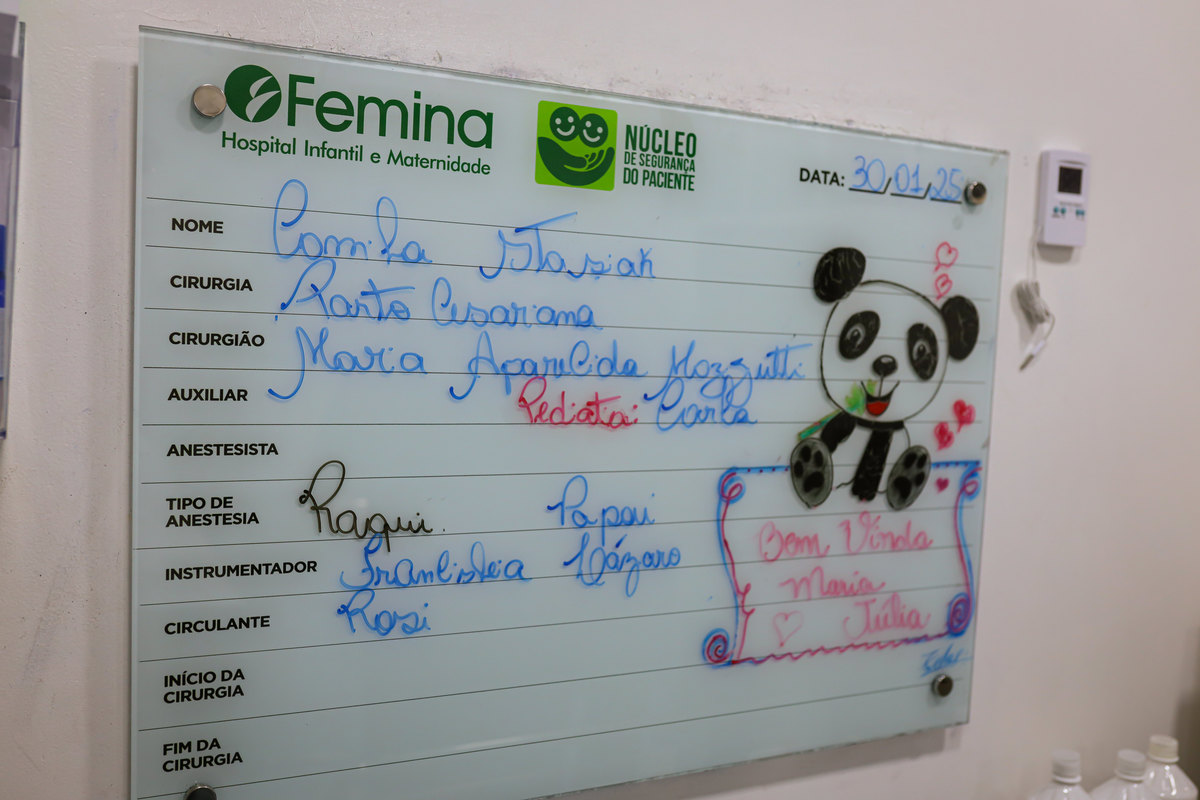 Femina
Hospital Infantil e Maternidade
NÚCLEO
DE SEGURANÇA
DO PACIENTE
DATA: 30/01/25
NOME Camila Stasiak
CIRURGIA Parto Cesariana
CIRURGIÃO Maria Aparecida Mozzutti
AUXILIAR Pediata: Carla
ANESTESISTA
TIPO DE
ANESTESIA Raqui. Papai
INSTRUMENTADOR Lázaro
CIRCULANTE Rosi
INÍCIO DA
CIRURGIA
FIM DA
CIRURGIA
Bem Vinda
Maria
Júlia